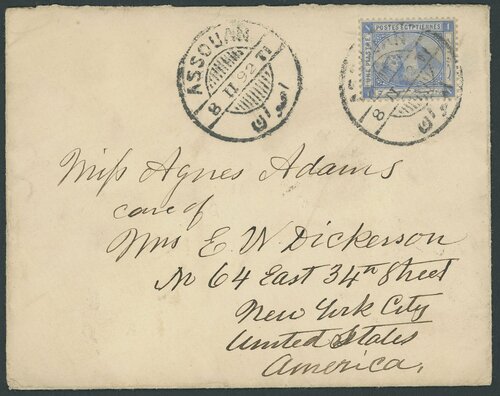 ASSOUAN
8 II 92 T1
اصوان
POSTES EGYPTIENNES
Miss Agnes Adams
care of
Mrs E W Dickerson
No 64 East 34th Street
New York City
United States
America.